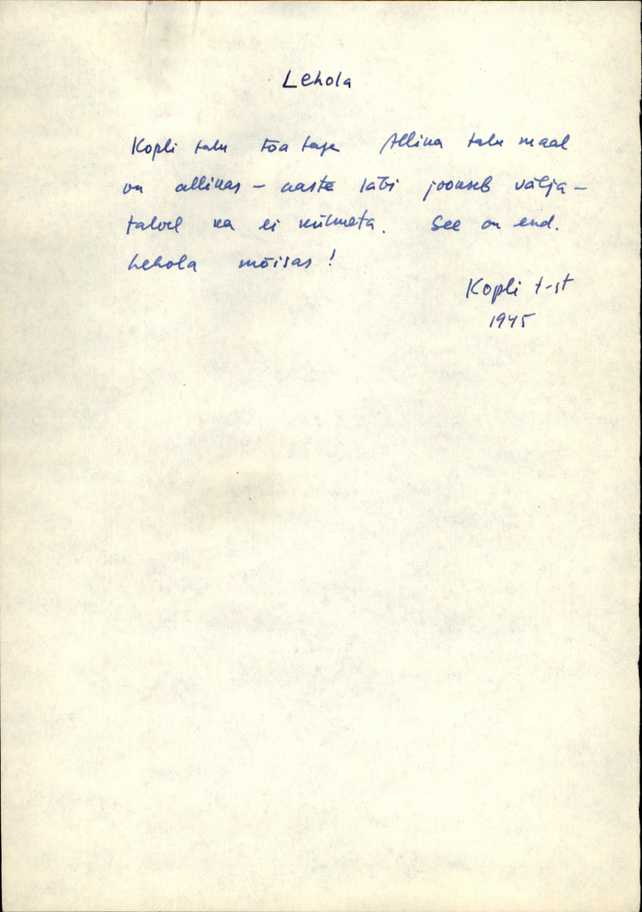 Lehola
Kopli talu toa taga Allika talu maal
on allikas – aasta läbi jookseb välja –
talvel ka ei külmeta. See on end.
Lehola mõisas!
Kopli t-st
1945